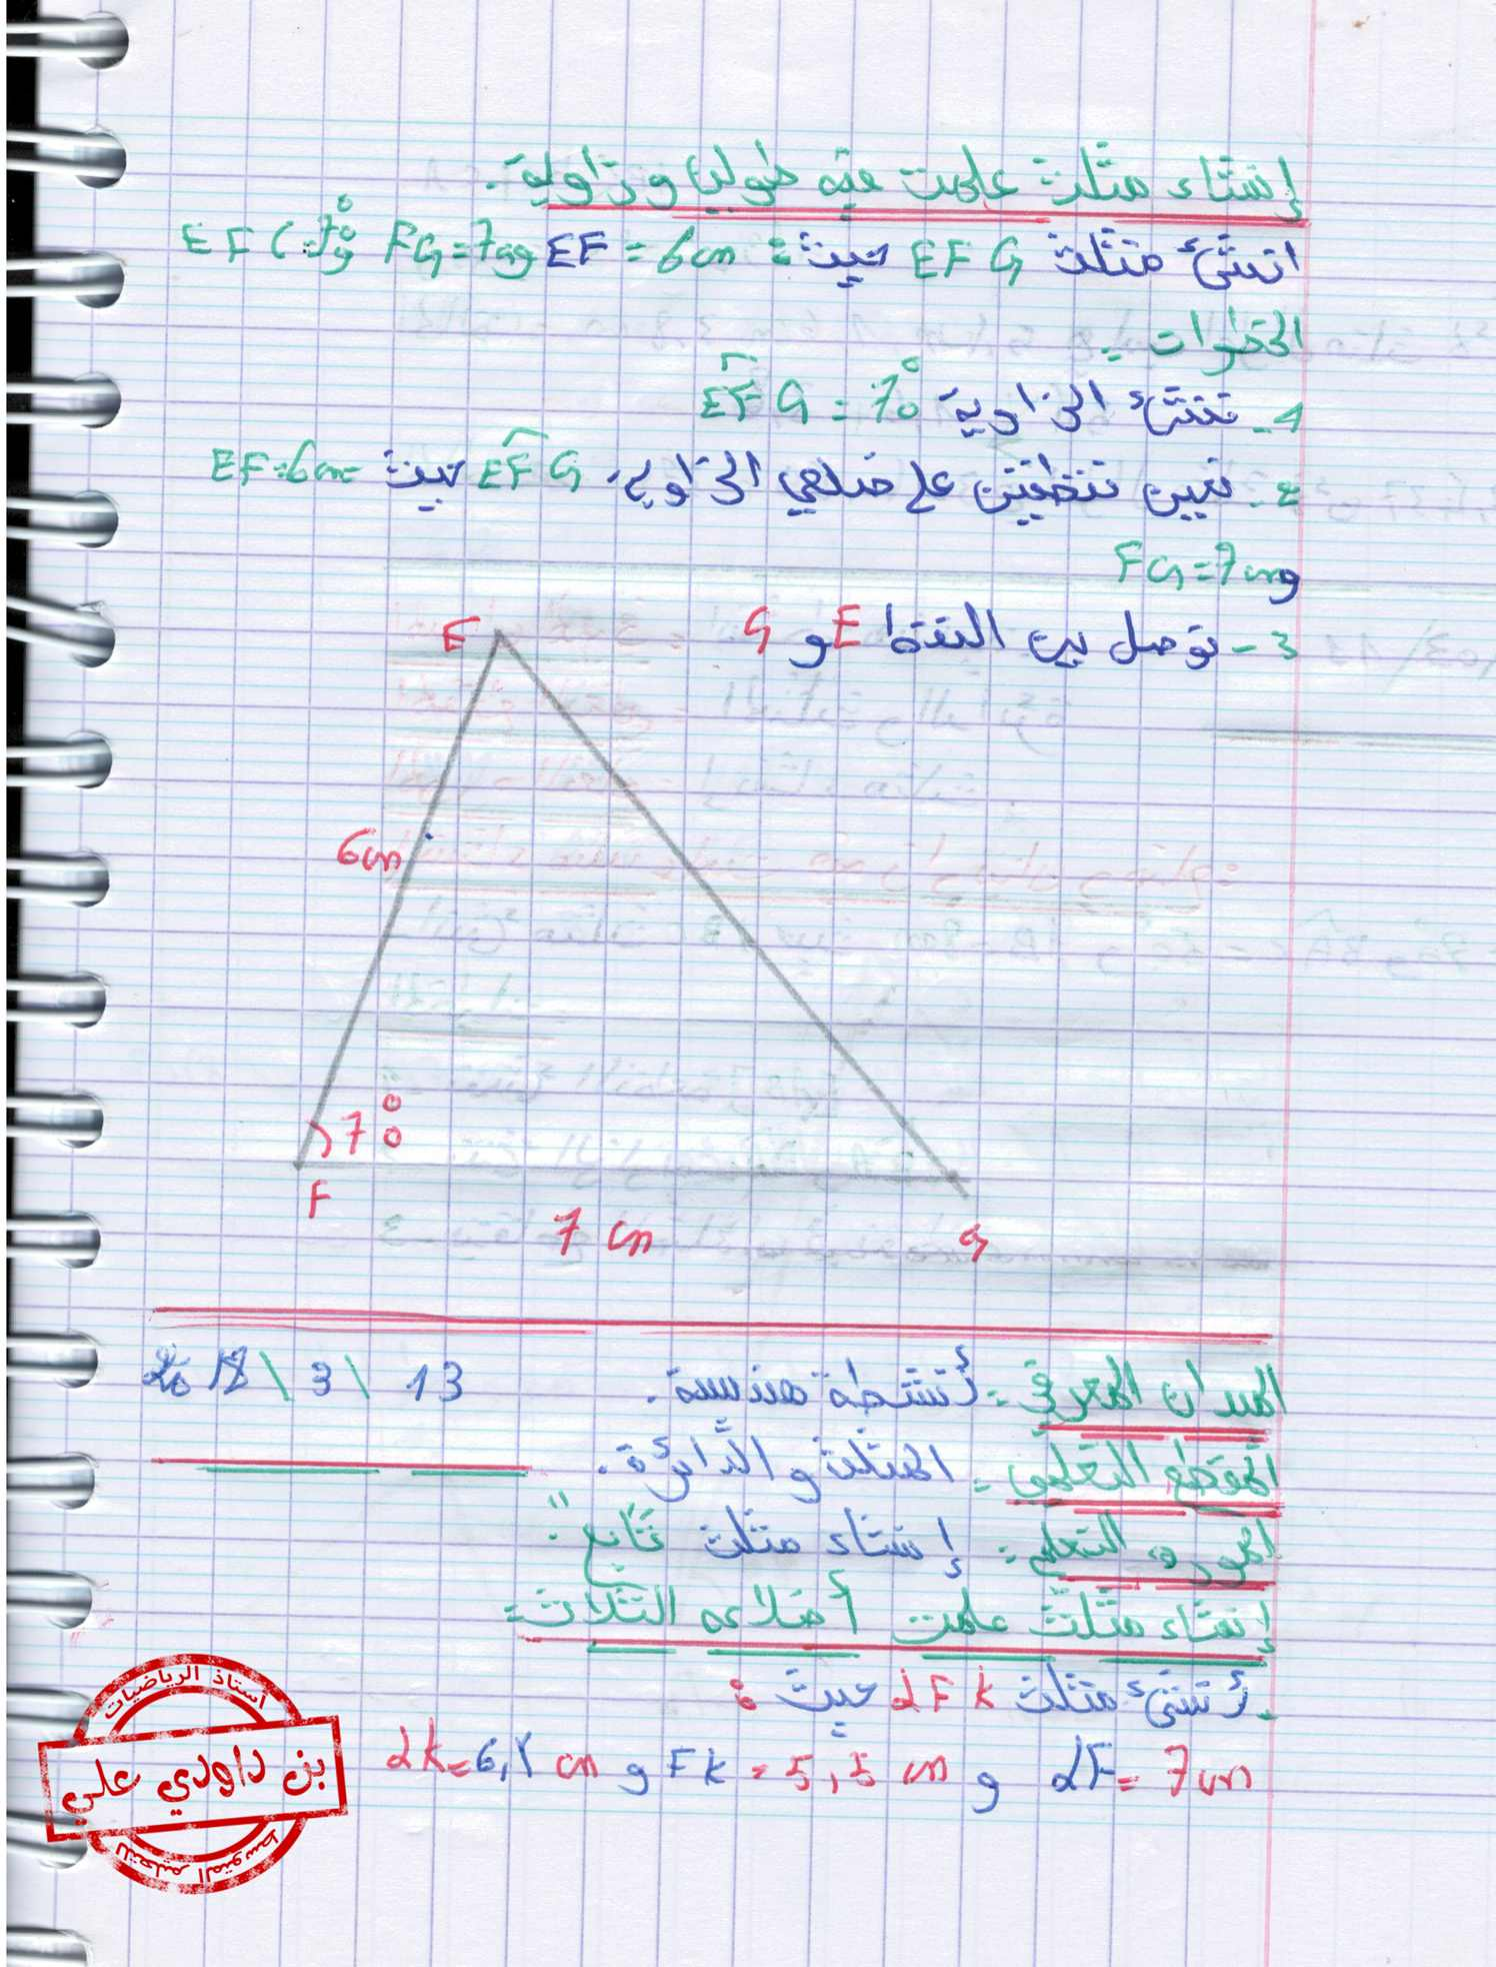 إنشاء مثلث علمت فيه طولين وزاوية.
انشئ مثلث EFG حيث: EF = 6cm و FG = 7cm و EFG = 70°
الخطوات -
1- ننشئ الزاوية EFG = 70°
2- نعين نقطتين على ضلعي الزاوية EFG حيث EF = 6cm
و FG = 7cm
3- نوصل بين النقط E و G
E
6cm
70°
F
7 cm
G
الميدان المعرفي :- أنشطة هندسية. 13 \ 3 \ 2018
المقطع التعلمي :- المثلث و الدائرة.
المورد التعلمي :- إنشاء مثلث "تابع"
إنشاء مثلث علمت أضلاعه الثلاث:
- أنشئ مثلث LFK حيث :
LF = 7cm و FK = 5,5 cm و LK = 6,2 cm
أستاذ الرياضيات
بن داودي علي
للتعليم المتوسط